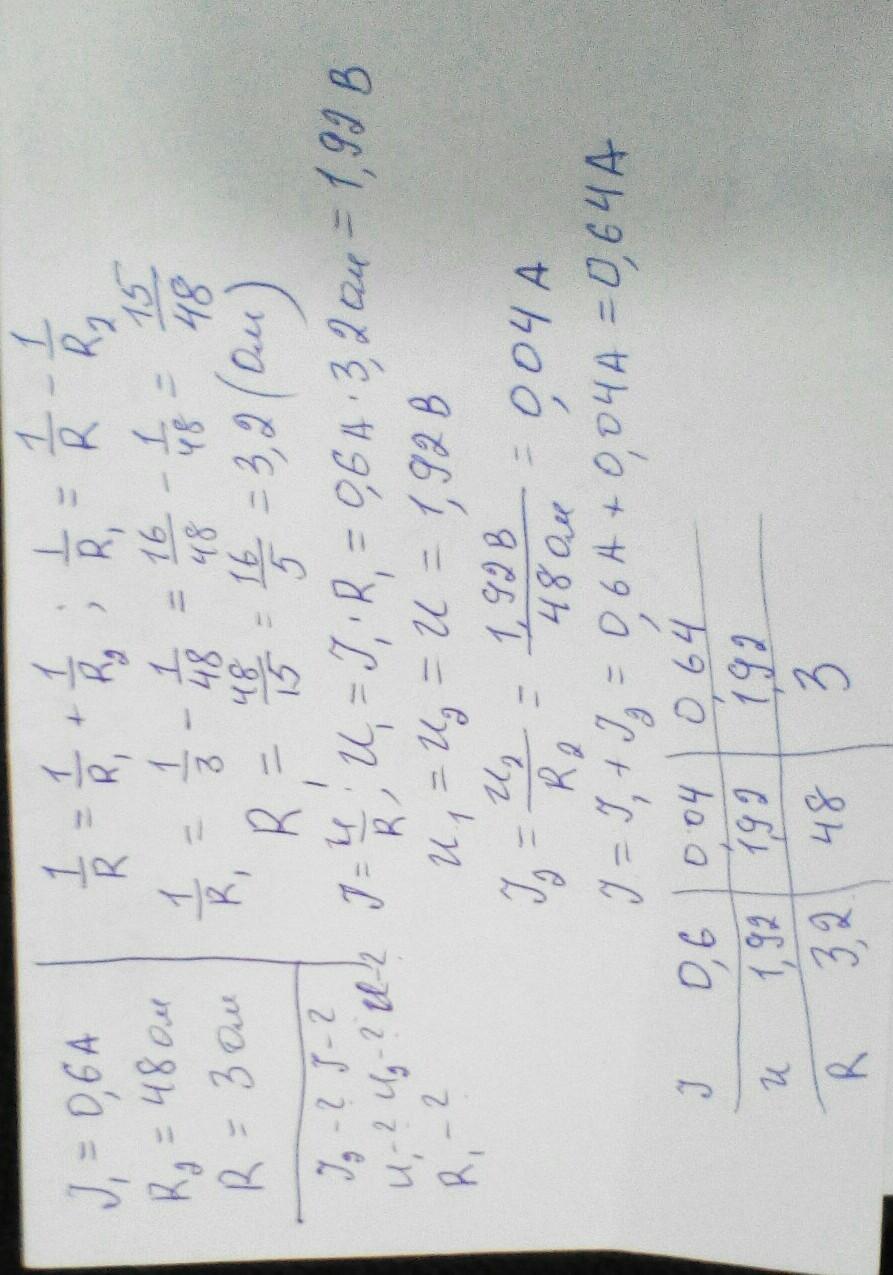 J₁ = 0,6 А
R₂ = 48 Ом
R = 3 Ом
J₂ - ? J - ?
U₁ - ? U₂ - ? U - ?
R₁ - ?
1/R = 1/R₁ + 1/R₂ ; 1/R₁ = 1/R - 1/R₂
1/R₁ = 1/3 - 1/48 = 16/48 - 1/48 = 15/48
R₁ = 48/15 = 16/5 = 3,2 (Ом)
J = U/R ; U₁ = J₁ · R₁ = 0,6 А · 3,2 Ом = 1,92 В
U₁ = U₂ = U = 1,92 В
J₂ = U₂/R₂ = 1,92 В/48 Ом = 0,04 А
J = J₁ + J₂ = 0,6 А + 0,04 А = 0,64 А
J 0,6 0,04 0,64
U 1,92 1,92 1,92
R 3,2 48 3